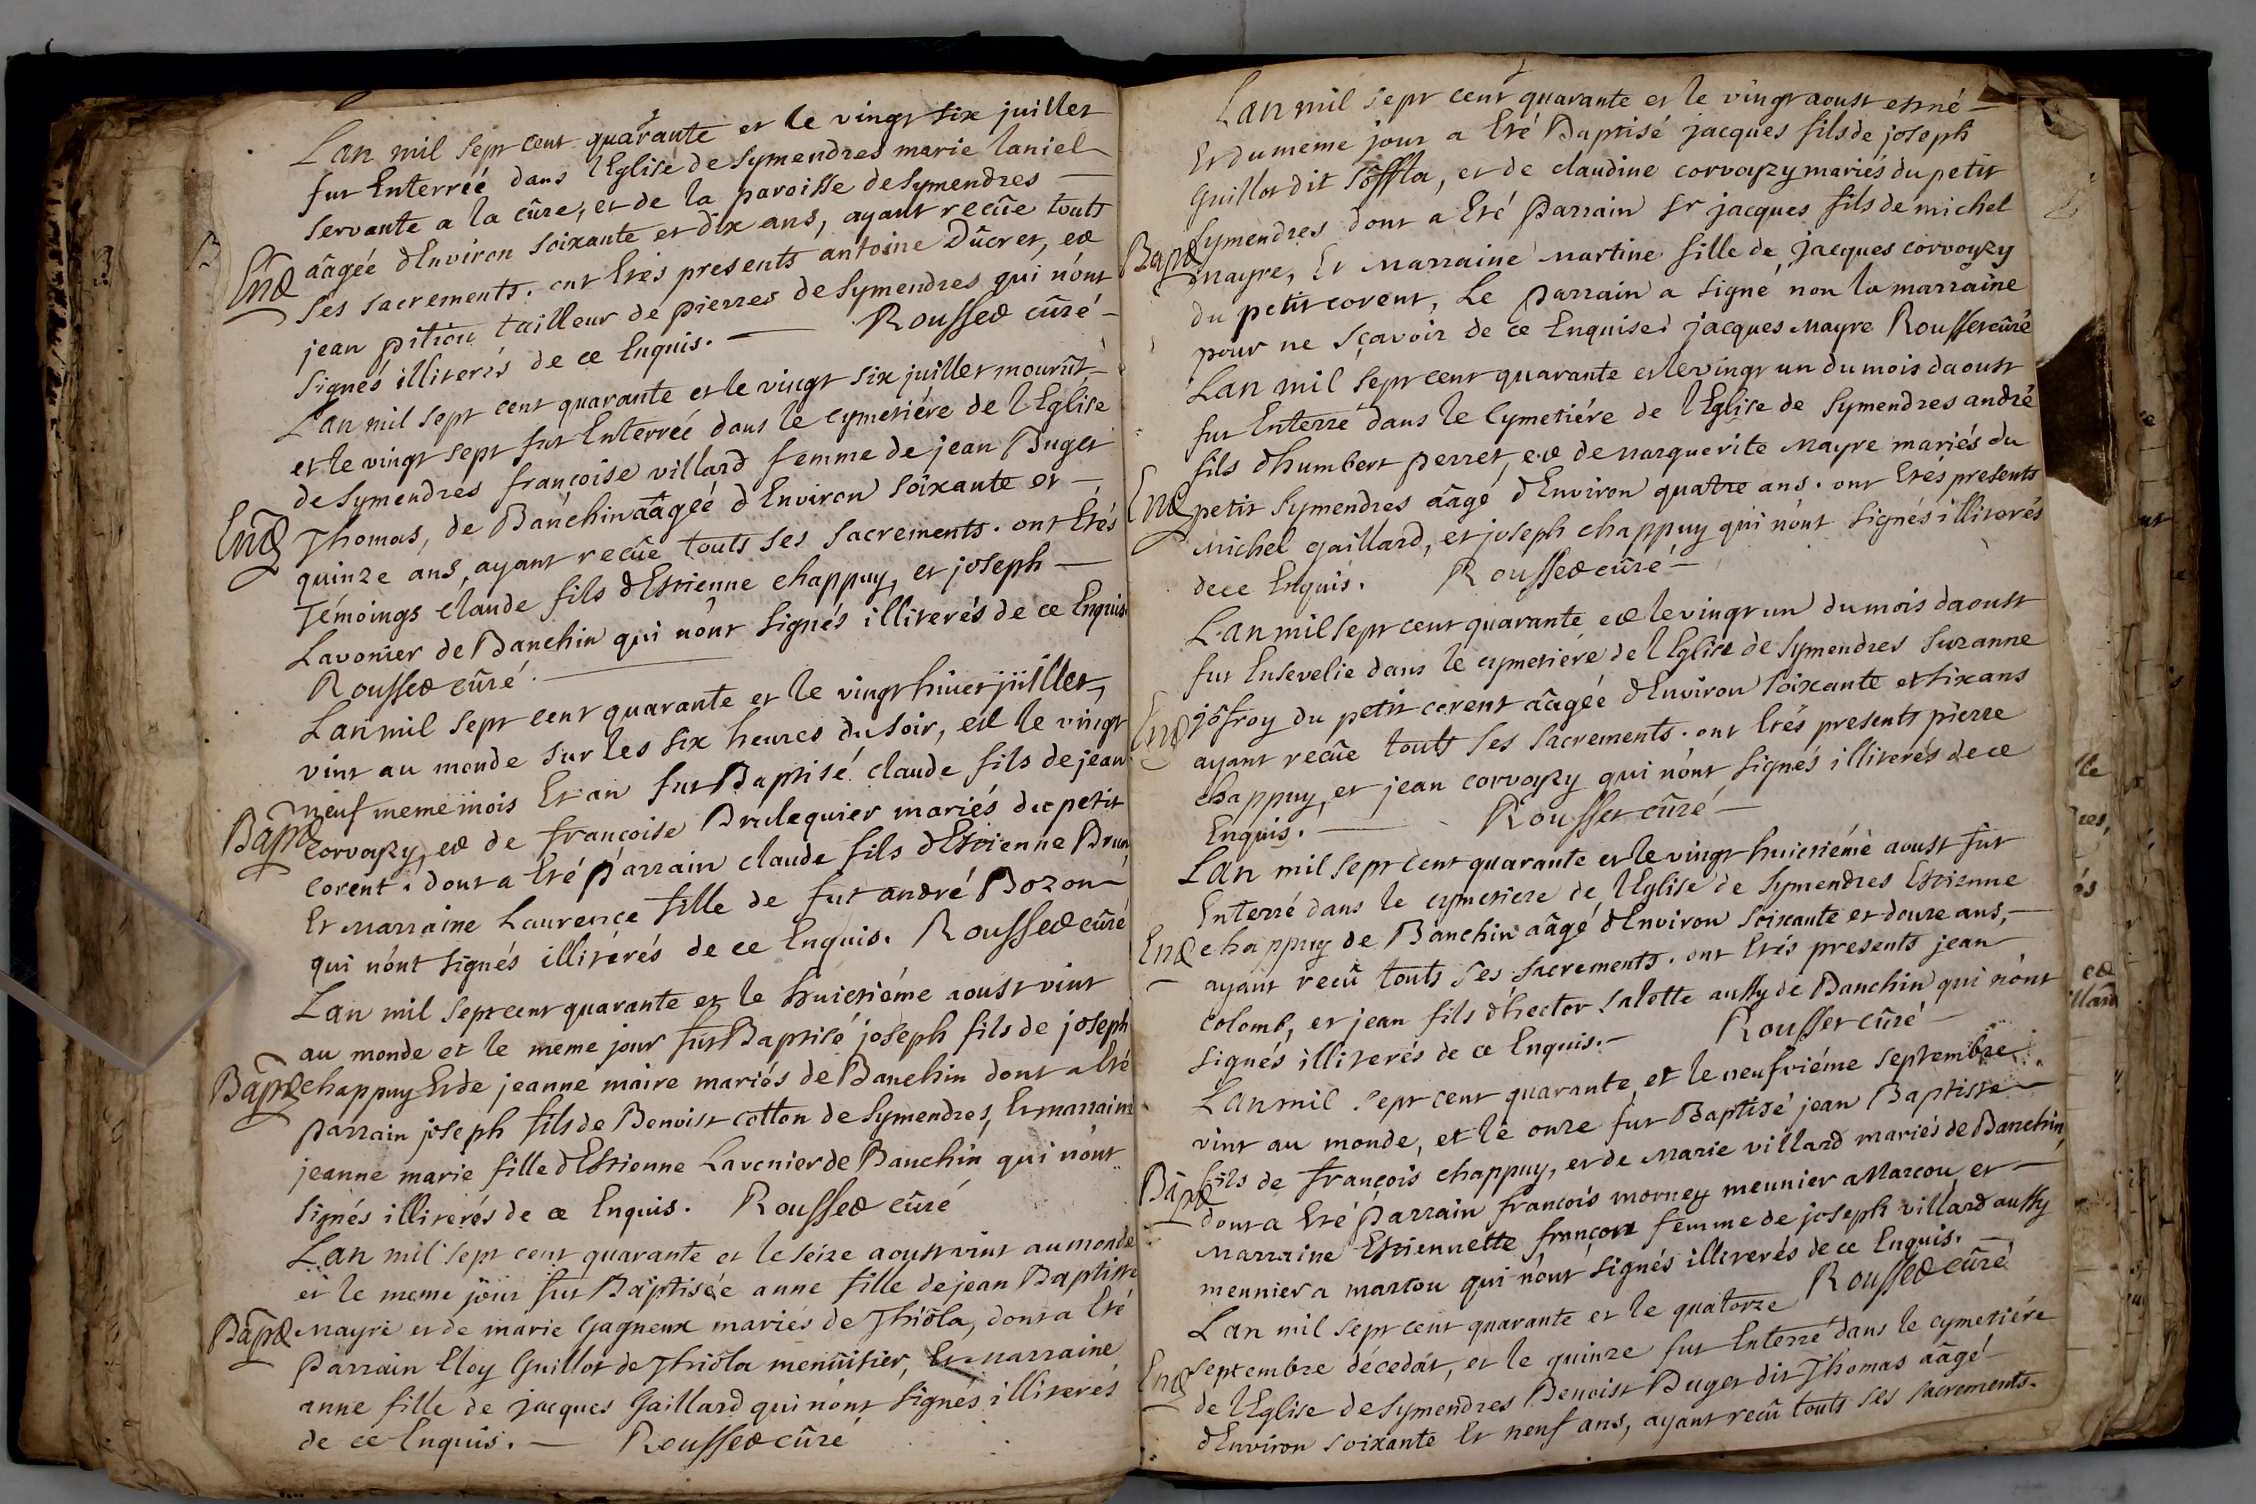 Lan mil sept cent quarante et le vingt six juillet
fut Enterreé dans l'Eglise de Symendres marie laniel
servante a la cûre, et de la paroisse de Symendres
Ent aâgée d'Environ soixante et dix ans, ayant recûe touts
ses sacrements. ont Etés presents antoine Dûcret, et
jean pition tailleur de pierres de Symendres qui n'ont
Signés illiterés de ce Enquis. Rousset cûré
Lan mil sept cent quarante et le vingt six juillet mourût
et le vingt sept fut Enterreé dans le cymetiére de l'Eglise
de Symendres françoise villard femme de jean Buget
Ent Thomas, de Banchin aâgée d'Environ soixante et
quinze ans, ayant recûe touts ses sacrements. ont Etés
Témoings claude fils d'Estienne chappuy, et joseph
Lavonier de Banchin qui n'ont signés illiterés de ce Enquis
Rousset cûré.
Lan mil sept cent quarante et le vingt huict jüillet
vint au monde sur les six heures du soir, et le vingt
neuf meme mois Et an fut Baptisé claude fils de jean
Bapt corvoyzy, et de françoise Brulequier mariés du petit
corent. dont a Eté Parrain claude fils d'Estienne Brun
Et Marraine Laurence fille de fut andré Bozon
qui n'ont signés illitérés de ce Enquis. Rousset cûré
Lan mil sept cent quarante et le huictiéme aoust vint
au monde et le meme jour fut Baptisé joseph fils de joseph
Bapt chappuy Et de jeanne maire mariés de Banchin dont a Eté
Parrain joseph fils de Benoist cotton de Symendres, Et marraine
jeanne marie fille d'Estienne Lavonier de Banchin qui n'ont
signés illiterés de ce Enquis. Rousset cûré
Lan mil sept cent quarante et le seize aoust vint au monde
et le meme jour fut Baptisée anne fille de jean Baptiste
Bapt Mayre et de marie Gagneux mariés de Thiôla, dont a Eté
Parrain Eloy Guillot de Thiôla menûisier, Et Marraine
anne fille de jacques Gaillard qui n'ont signés illiterés
de ce Enquis. Rousset cûré
Lan mil sept cent quarante et le vingt aoust est né
Et du meme jour a Eté Baptisé jacques fils de joseph
Guillot dit Soffla, et de claudine corvoyzy mariés du petit
Symendres dont a Eté Parrain Sr jacques fils de michel
Bapt Mayre, Et Marraine Martine fille de jacques corvoyzy
du petit corent, Le Parrain a signé non la marraine
pour ne sçavoir de ce Enquise. jacques Mayre Rousset cûré
Lan mil sept cent quarante et le vingt un du mois daoust
fut Enterré dans le Cymetiére de l'Eglise de Symendres andré
fils d'humbert perret, et de Marguerite Mayre mariés du
Ent petit Symendres aâgé d'Environ quatre ans. ont Etés presents
Michel gaillard, et joseph chappuy qui n'ont signés illiterés
de ce Enquis. Rousset cûré
Lan mil sept cent quarante et le vingt un du mois daoust
fut Ensevelie dans le cymetiére de l'Eglise de Symendres Suzanne
Ent jôfroy du petit corent aâgée d'Environ soixante et six ans
ayant recûe touts ses sacrements. ont Etés presents pierre
chappuy, et jean corvoyzy qui n'ont signés illiterés de ce
Enquis. Rousset cûré
Lan mil sept cent quarante et le vingt huictiéme aoust fut
Enterré dans le cymetiere de l'Eglise de Symendres Estienne
Ent chappuy de Banchin aâgé d'Environ soixante et douze ans,
ayant recû touts ses sacrements. ont Etés presents jean
colomb, et jean fils d'hector Salotte aussy de Banchin qui n'ont
signés illiterés de ce Enquis. Rousset cûré
Lan mil sept cent quarante et le neufviéme septembre
vint au monde, et le onze fut Baptisé jean Baptiste
Bapt fils de françois chappuy, et de Marie villard mariés de Banchin,
dont a Eté Parrain françois morney meunier a Marcou et
Marraine Estiennette françon femme de joseph villard aussy
meunier a martou qui n'ont signés illiterés de ce Enquis.
Rousset cûré
Lan mil sept cent quarante et le quatorze
Ent septembre décedát, et le quinze fut Enterré dans le cymetiére
de l'Eglise de Symendres Benoist Buget dit Thomas aâgé
d'Environ soixante Et neuf ans, ayant recû touts ses sacrements.